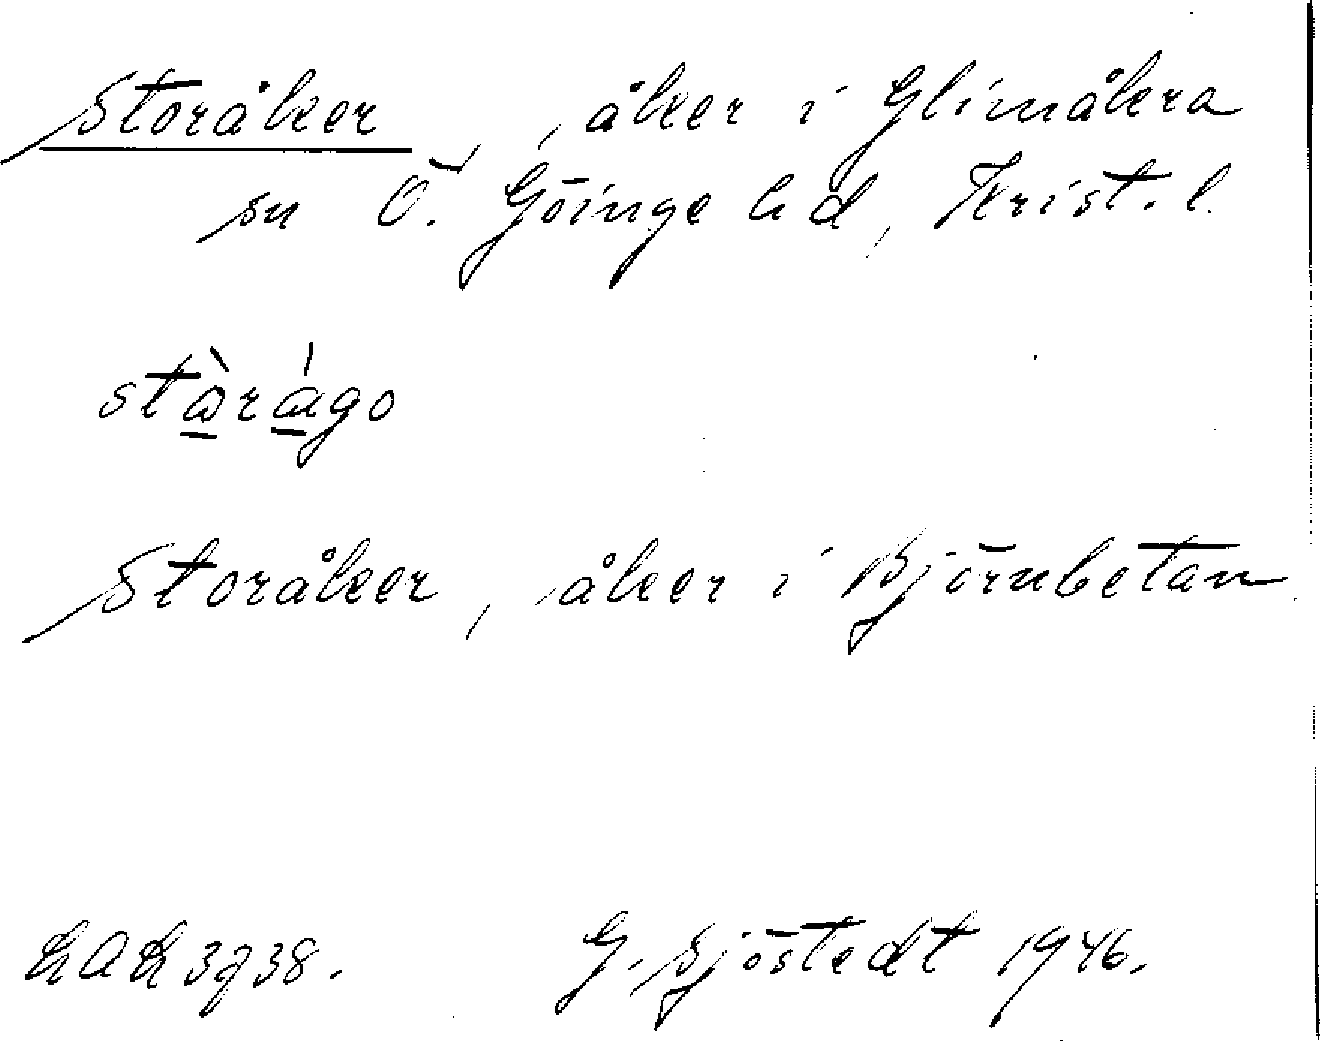 Storåker, åker i Glimåkra
sn Ö. Göinge hd, Krist. l.
Storåker, åker i Björnbetan
G. Sjöstedt 1946.